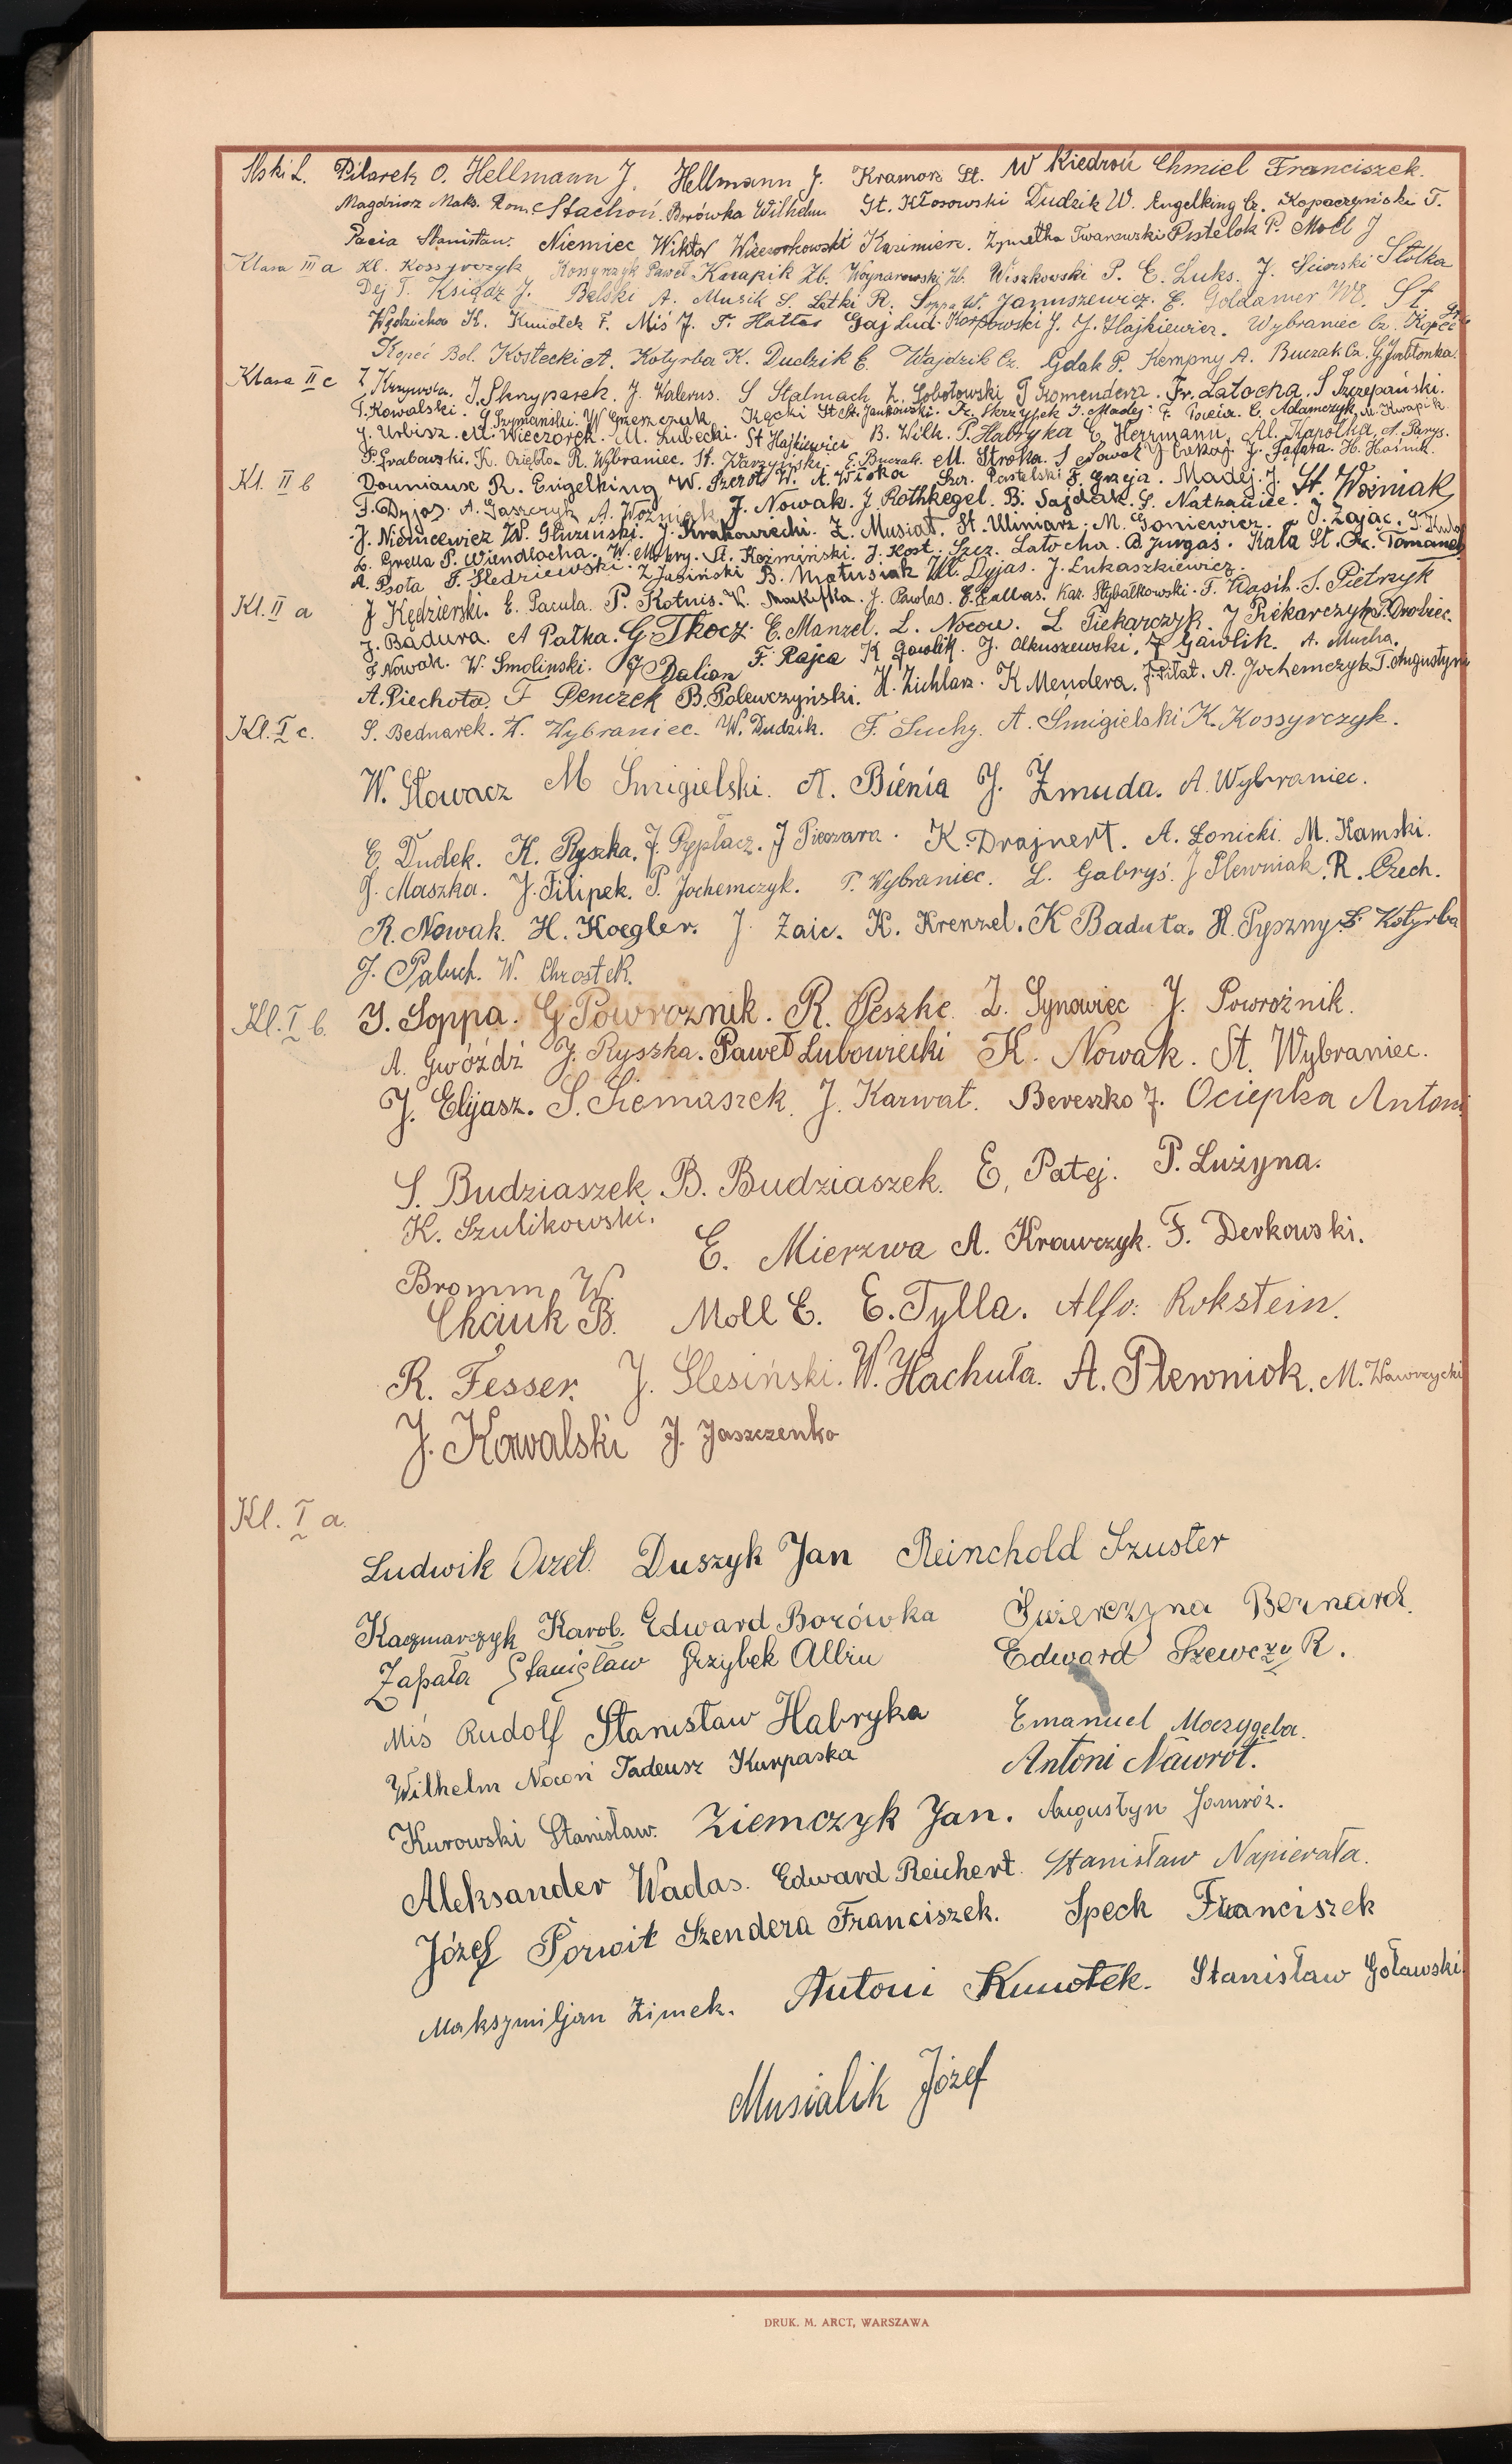 Ilski L. Pilarek O. Hellmann J. Hellmann J. Kramorz St. W Kiedroń Chmiel Franciszek.
Magdziorz Maks. Rom. Stachoń. Borówka Wilhelm St. Kłosowski Dudzik W. Engelking Cz. Kopaczyński T.
Pacia Stanisław. Niemiec Wiktor Wieczorkowski Kazimierz. Iwanowski Pistelok P. Moll J
Klasa III a Kl. Kossyrczyk Kossyrczyk Paweł Knapik Zb. Wojnarowski Zb. Wiszkowski P. E. Luks. J. Sciorski Stolka
Dej T. Ksiądz J. Belski A. Musik S. Latki R. Soppa W. Januszewicz. E. Goldamer W. St.
Wędzicha K. Kmiotek F. Miś J. F. Hattas Gaj Lud. Karpowski J. J. Hajkiewicz. Wybraniec Cz. Kopeć St.
Kopeć Bol. Kostecki A. Kotyrba K. Dudzik E. Wajdzik Cz. Gdak P. Kempny A. Buczak Cz. G. Jabłonka.
Klasa II c Z. Krzywda. J. Sknypasek. J. Walerus. S Stalmach Z. Sobotowski T Komendera. Fr. Latocha. S Szczepański.
T. Kowalski. G. Szymański. W Grzeszczuk Kącki St. St. Jankowski. Fr. Skrzypek J. Madej. F. C. Adamczyk. M. Kwapik
J. Urbisz. M. Wieczorek. M. Lubecki. St Hajkiewicz B. Wilk. P. Habryka E. Herrmann, Al. Kapołka, A. Parys.
P. Grabowski. K. Oziębło. R. Wybraniec. St. Warzyński. E. Buczak. M. Stroka. S Nawak J. Cekaj. J. Fajfara. H. Haśnik.
Kl. II b Douniaux R. Engelking W. Szczotk W. A. Wloka Szcz. Pastelski F. Grzeja. Madej. J. St. Woźniak,
F. Dyjas. A. Gaszczyk A. Woźniak J. Nowak. J. Rothkegel. B. Sajdak. S. Nathaniec. J. Zając.
J. Niemcewicz W. Głuziński. J. Krakowiecki. Z. Musiał. St. Uliniarz. M. Goniewicz.
L. Grella P. Wiendlocha. W. Mokry. St. Koźmiński. J. Kost. Szcz. Latocha. A. Jurgaś. Kała St. Cz. Tomanek
A. Psota F. Śledziewski. Z Jasiński B. Matusiak Wł. Dyjas. J. Łukaszkiewicz.
Kl. II a J Kędzierski. E. Pacula. P. Kotnis. W. Markefka. J. Pawlas. E. Gallas. Kaz. Stybałkowski. F. Wasik. S. Pietrzyk
J. Badura. A Pałka. G. Tkocz. E. Manzel. L. Nocoń. L Piekarczyk. J Piekarczyk. P. Drobiec.
F. Nowak. W. Smoliński. J Dalion F. Rajca K Gawlik. J. Olkuszewski. J Gawlik. A. Mucha.
A. Piechota. F Penczek B. Polewczyński. H. Zichlarz. K Mendera. J. Piłat. A. Jochemczyk T. Augustyn
Kl. I c. S. Bednarek. H. Wybraniec. W. Dudzik. F. Suchy. A. Smigielski K. Kossyrczyk.
W. Głowacz M Smigielski. A. Bienia J. Żmuda. A. Wybraniec.
E. Dudek. K. Ryszka. J. Przypłacz. J Pieczara. K. Drajnert. A. Łonicki. M. Kamski.
J. Maszka. J. Filipek. P. Jochemczyk. T. Wybraniec. L. Gabryś. J Plewniak. R. Czech.
R. Nowak. H. Koegler. J. Zaic. K. Krenzel. K Baduta. H. Pyszny S. Kotyrba
J. Paluch. W. Chrostek.
Kl. I b. J. Soppa. G Powroznik. R. Peszke. Z. Synowiec J. Powroźnik.
A. Gwóźdź J. Ryszka. Paweł Lubowiecki K. Nowak. St. Wybraniec.
J. Elijasz. S. Siemaszek. J. Karwat. Bereszko J. Ociepka Antoni
S. Budziaszek. B. Budziaszek. E. Patej. P. Lużyna.
K. Szulikowski.
E. Mierzwa A. Krawczyk. F. Derkowski.
Bromm W.
Chciuk B. Moll E. E. Tylla. Alfo: Rokstein.
R. Fesser. J. Ślesiński. W. Hachuła. A. Plewniok. M. Wawrzycki
J. Kowalski J. Jaszczenko
Kl. I a.
Ludwik Orzeł. Duszyk Jan Reinchold Szuster
Kaczmarczyk Karol. Edward Borówka Świerczyna Bernard.
Zapała Stanisław Grzybek Albin Edward Szewczyk.
Miś Rudolf Stanisław Habryka Emanuel Moczygęba.
Wilhelm Nocoń Tadeusz Kurpaska Antoni Nawrot.
Kurowski Stanisław. Ziemczyk Jan. Augustyn Jamróz.
Aleksander Wadas. Edward Reichert. Stanisław Napierała.
Józef Porwit Szendera Franciszek. Speck Franciszek
Maksymiljan Zimek. Antoni Kmiotek. Stanisław Goławski.
Musialik Józef
DRUK. M. ARCT, WARSZAWA